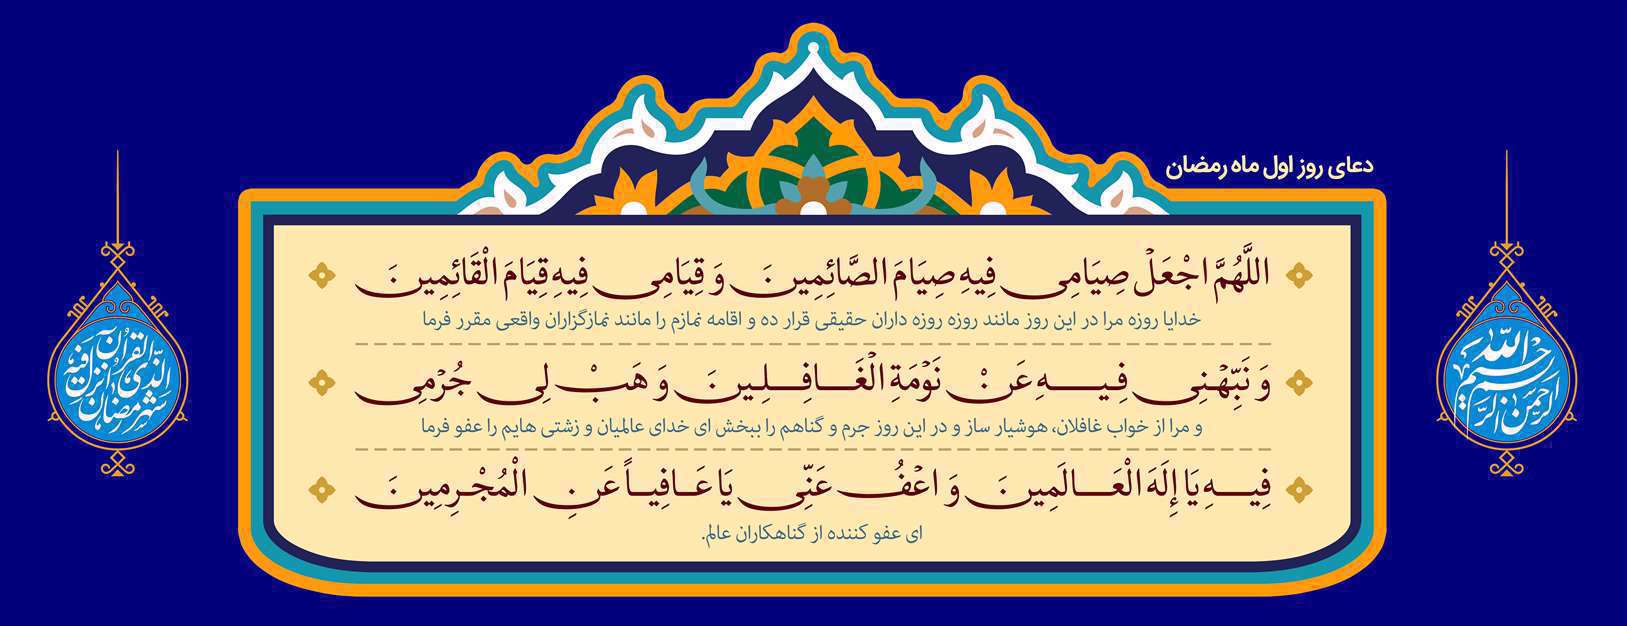 دعای روز اول ماه رمضان
اللَّهُمَّ اجْعَلْ صِيَامِي فِيهِ صِيَامَ الصَّائِمِينَ وَ قِيَامِي فِيهِ قِيَامَ الْقَائِمِينَ
خدایا روزه مرا در این روز مانند روزه روزه داران حقیقی قرار ده و اقامه نمازم را مانند نمازگزاران واقعی مقرر فرما
وَ نَبِّهْنِي فِيهِ عَنْ نَوْمَةِ الْغَافِلِينَ وَ هَبْ لِي جُرْمِي
و مرا از خواب غافلان، هوشیار ساز و در این روز جرم و گناهم را ببخش ای خدای عالمیان و زشتی هایم را عفو فرما
فِيهِ يَا إِلَهَ الْعَالَمِينَ وَ اعْفُ عَنِّي يَا عَافِياً عَنِ الْمُجْرِمِينَ
ای عفو کننده از گناهکاران عالم.
بسم الله الرحمن الرحیم
شهر رمضان الذی انزل فیه القرآن